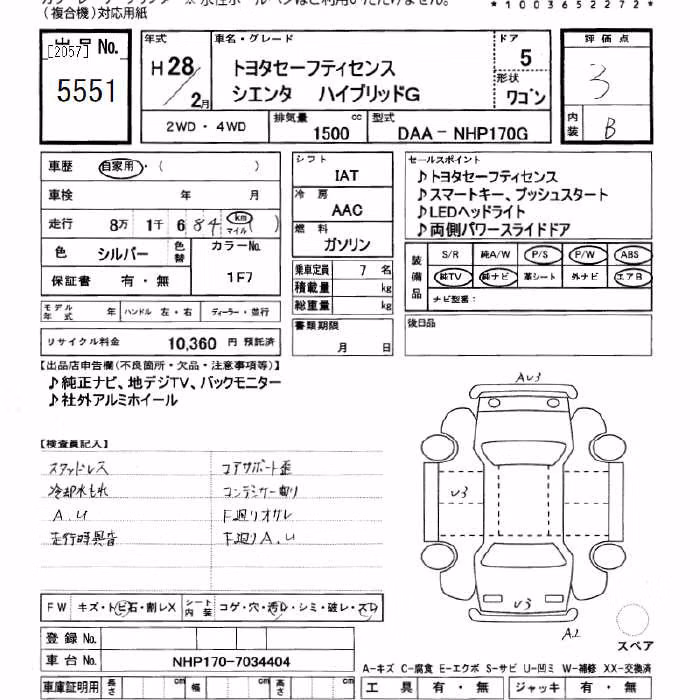 *1003652272*
(複合機)対応用紙
出品No.
[2057]
5551
年式
H28/2月
車名・グレード
トヨタセーフティセンス
シエンタ ハイブリッドG
ドア
5
形状
ワゴン
評価点
3
内装
B
2WD・4WD
排気量
1500 cc
型式
DAA-NHP170G
車歴 自家用・( )
車検 年 月
走行 8万 1千 6 84 km マイル ( )
色 シルバー 色替
カラーNo.
1F7
保証書 有・無
モデル年式 年 ハンドル 左・右 ディーラー・並行
リサイクル料金 10,360 円 預託済
シフト
IAT
冷房
AAC
燃料
ガソリン
乗車定員 7 名
積載量 kg
総重量 kg
書類期限
月 日
セールスポイント
♪トヨタセーフティセンス
♪スマートキー、プッシュスタート
♪LEDヘッドライト
♪両側パワースライドドア
装備品
S/R 純A/W P/S P/W ABS
純TV 純ナビ 革シート 外ナビ エアB
ナビ型番:
後日品
【出品店申告欄(不良箇所・欠品・注意事項等)】
♪純正ナビ、地デジTV、バックモニター
♪社外アルミホイール
【検査員記入】
スタッドレス
冷却水もれ
A.U
走行時異音
コアサポート歪
コンデンサー曲り
F廻りオカレ
F廻りA.U
AU3
U3
U3
A2
スペア
FW キズ・トビ石・割レX
シート内装 コゲ・穴・汚レ・シミ・破レ・スレ
登録No.
車台No. NHP170-7034404
車庫証明用 長さ cm 幅 cm 高さ cm
A-キズ C-腐食 E-エクボ S-サビ U-凹ミ W-補修 XX-交換済
工具 有・無 ジャッキ 有・無